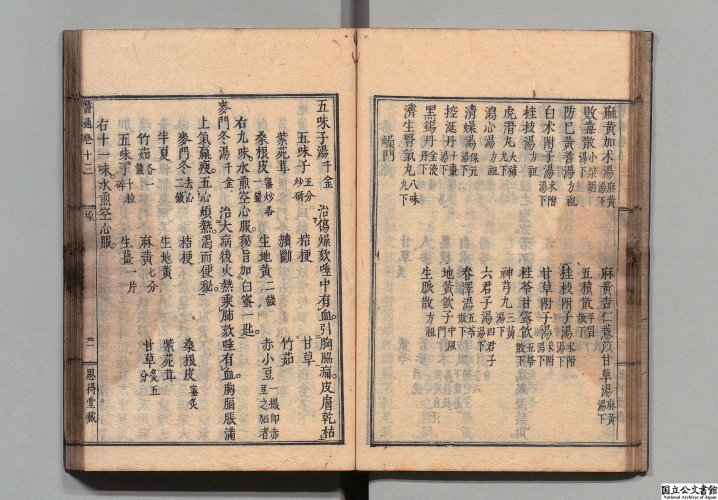 麻黃加木湯麻黃湯下 麻黃杏仁薏苡甘草湯麻黃湯下
敗毒散小柴胡湯下 五積散平胃散下
防巳黃蓍湯方祖 桂枝附子湯木附湯下
白木附子湯木附湯下 甘草附子湯木附湯下
桂枝湯方祖 桂苓甘露飲五苓散下
虎潛丸大補丸下 神芎丸三黃湯下
瀉心湯方祖 六君子湯四君子湯下
清燥湯保元湯下 春澤湯五苓散下
控涎丹十棗湯下 地黃飲子中風門
黑錫丹金液丹下 生脈散方祖
濟生腎氣丸八味丸下
燥門
五味子湯千金 治傷燥欬唾中有血引胸脇痛皮膚乾枯
五味子五分炒研 桔梗 甘草
紫菀茸 續斷 竹茹
桑根皮蜜炒各一錢 生地黃二錢 赤小豆一撮卽赤豆之細者
右九味水煎空心服秘旨加白蜜一匙
麥門冬湯千金 治大病後火熱乘肺欬唾有血胸膈脹滿
上氣羸瘦五心煩熱渴而便秘
麥門冬二錢去心 桔梗 桑根皮蜜炙
半夏 生地黃 紫菀茸
竹茹各一錢 麻黃七分 甘草炙五分
五味子十粒碎 生薑一片
右十一味水煎空心服
醫通卷十三 思得堂藏
国立公文書館
National Archives of Japan